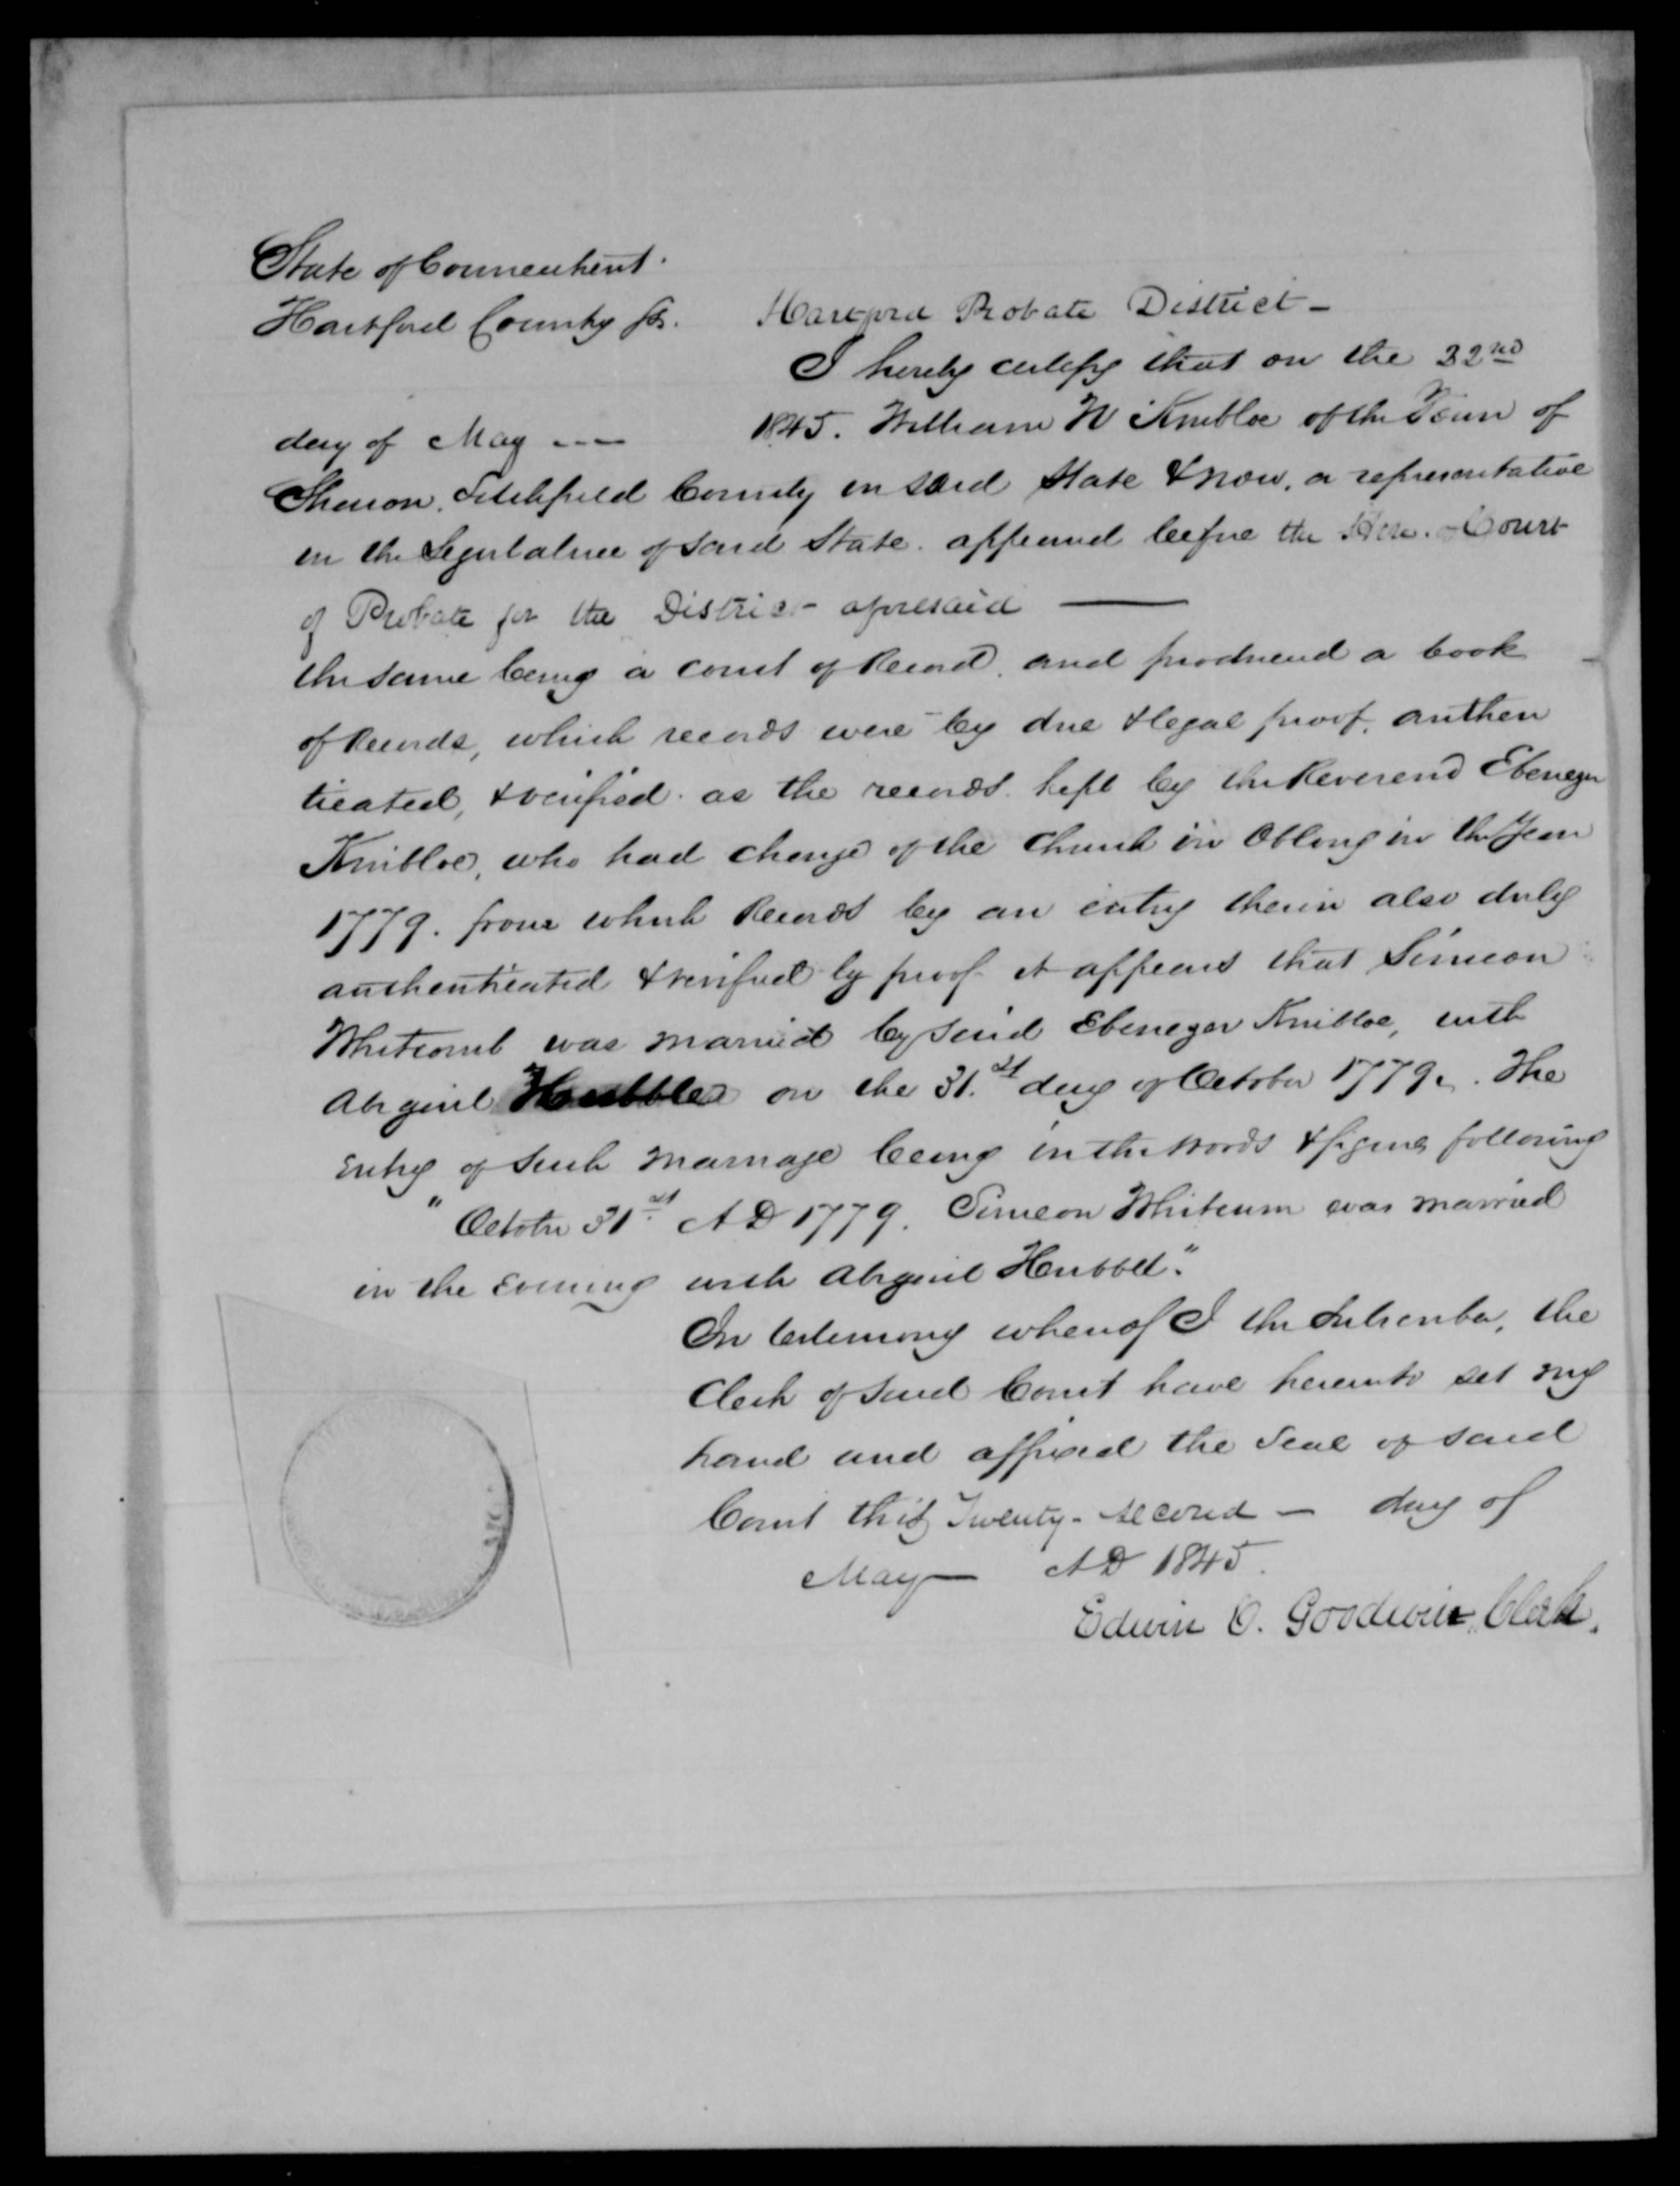 State of Connecticut.
Hartford County ss. Hartford Probate District -
I hereby certify that on the 22nd
day of May --- 1845. William W Knibloe of the Town of
Sharon, Litchfield County in said State & now, a representative
in the Legislature of said State. appeared before the Hon. Court
of Probate for the District aforesaid —
the same being a court of Record, and produced a book
of Records, which records were by due & legal proof, authen
ticated, & verified as the records kept by the Reverend Ebenezer
Knibloe, who had charge of the Church in Oblong in the Year
1779. from which Records by an entry therein also duly
authenticated & verified by proof it appears that Simeon
Whitcomb was married by said Ebenezer Knibloe, with
Abigail Hubble on the 31.st day of October 1779. The
Entry of such marriage being in the words & figures following
" October 31st A D 1779. Simeon Whitcum was married
in the Evening with Abigail Hubbel."
In testimony whereof I the Subscriber, the
Clerk of said Court have hereunto set my
hand and affixed the Seal of said
Court this Twenty-second — day of
May — A D 1845.
Edwin O. Goodwin, Clerk.